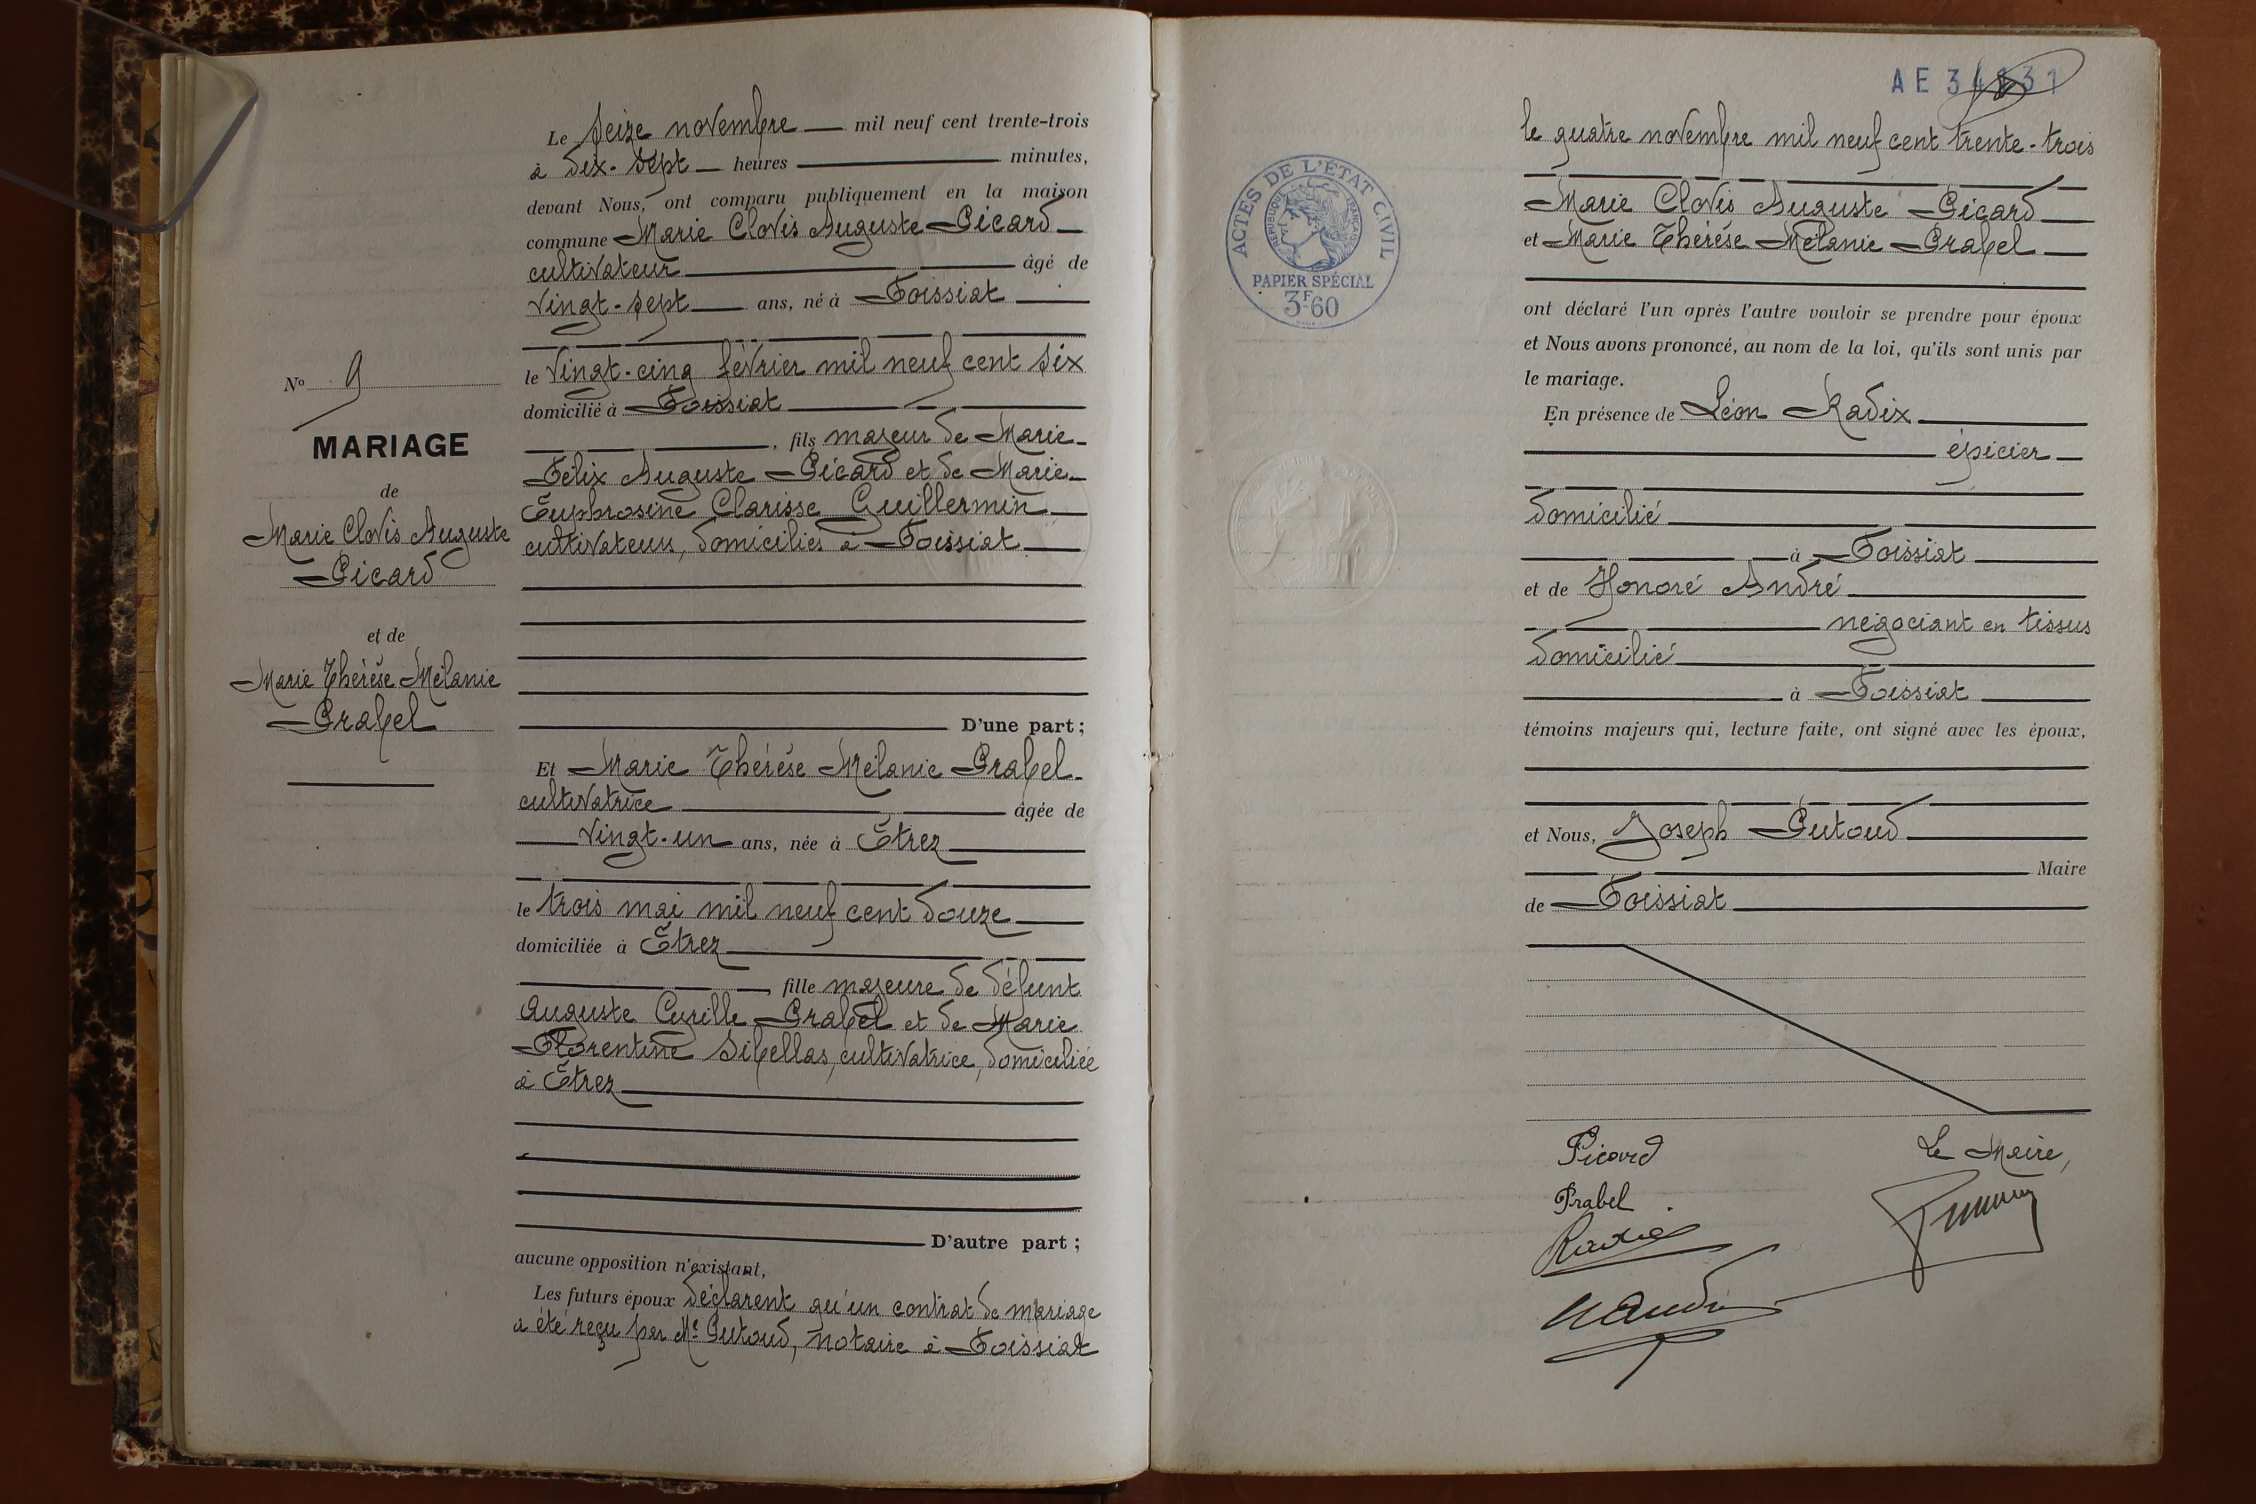 Le seize novembre mil neuf cent trente-trois
à dix-sept heures minutes,
devant Nous, ont comparu publiquement en la maison
commune Marie Clovis Auguste Picard
cultivateur âgé de
vingt-sept ans, né à Foissiat
le vingt-cinq février mil neuf cent six
domicilié à Foissiat
, fils majeur de Marie
Félix Auguste Picard et de Marie
Euphrosine Clarisse Guillermin
cultivateurs, domiciliés à Foissiat
No 9
MARIAGE
de
Marie Clovis Auguste
Picard
et de
Marie Thérèse Mélanie
Prabel
D'une part ;
Et Marie Thérèse Mélanie Prabel
cultivatrice âgée de
vingt-un ans, née à Etrez
le trois mai mil neuf cent douze
domiciliée à Etrez
, fille majeure de défunt
Auguste Cyrille Prabel et de Marie
Florentine Sibellas, cultivatrice, domiciliée
à Etrez
D'autre part ;
aucune opposition n'existant,
Les futurs époux déclarent qu'un contrat de mariage
a été reçu par Me Putoud, notaire à Foissiat
AE 34
le quatre novembre mil neuf cent trente-trois
Marie Clovis Auguste Picard
et Marie Thérèse Mélanie Prabel
ACTES DE L'ÉTAT CIVIL
RÉPUBLIQUE FRANÇAISE
PAPIER SPÉCIAL
3F60
ont déclaré l'un après l'autre vouloir se prendre pour époux
et Nous avons prononcé, au nom de la loi, qu'ils sont unis par
le mariage.
En présence de Léon Radix
épicier
domicilié
à Foissiat
et de Honoré André
négociant en tissus
domicilié
à Foissiat
témoins majeurs qui, lecture faite, ont signé avec les époux,
et Nous, Joseph Putoud
Maire
de Foissiat
Picard
Le Maire,
Prabel
Radix
HAndré